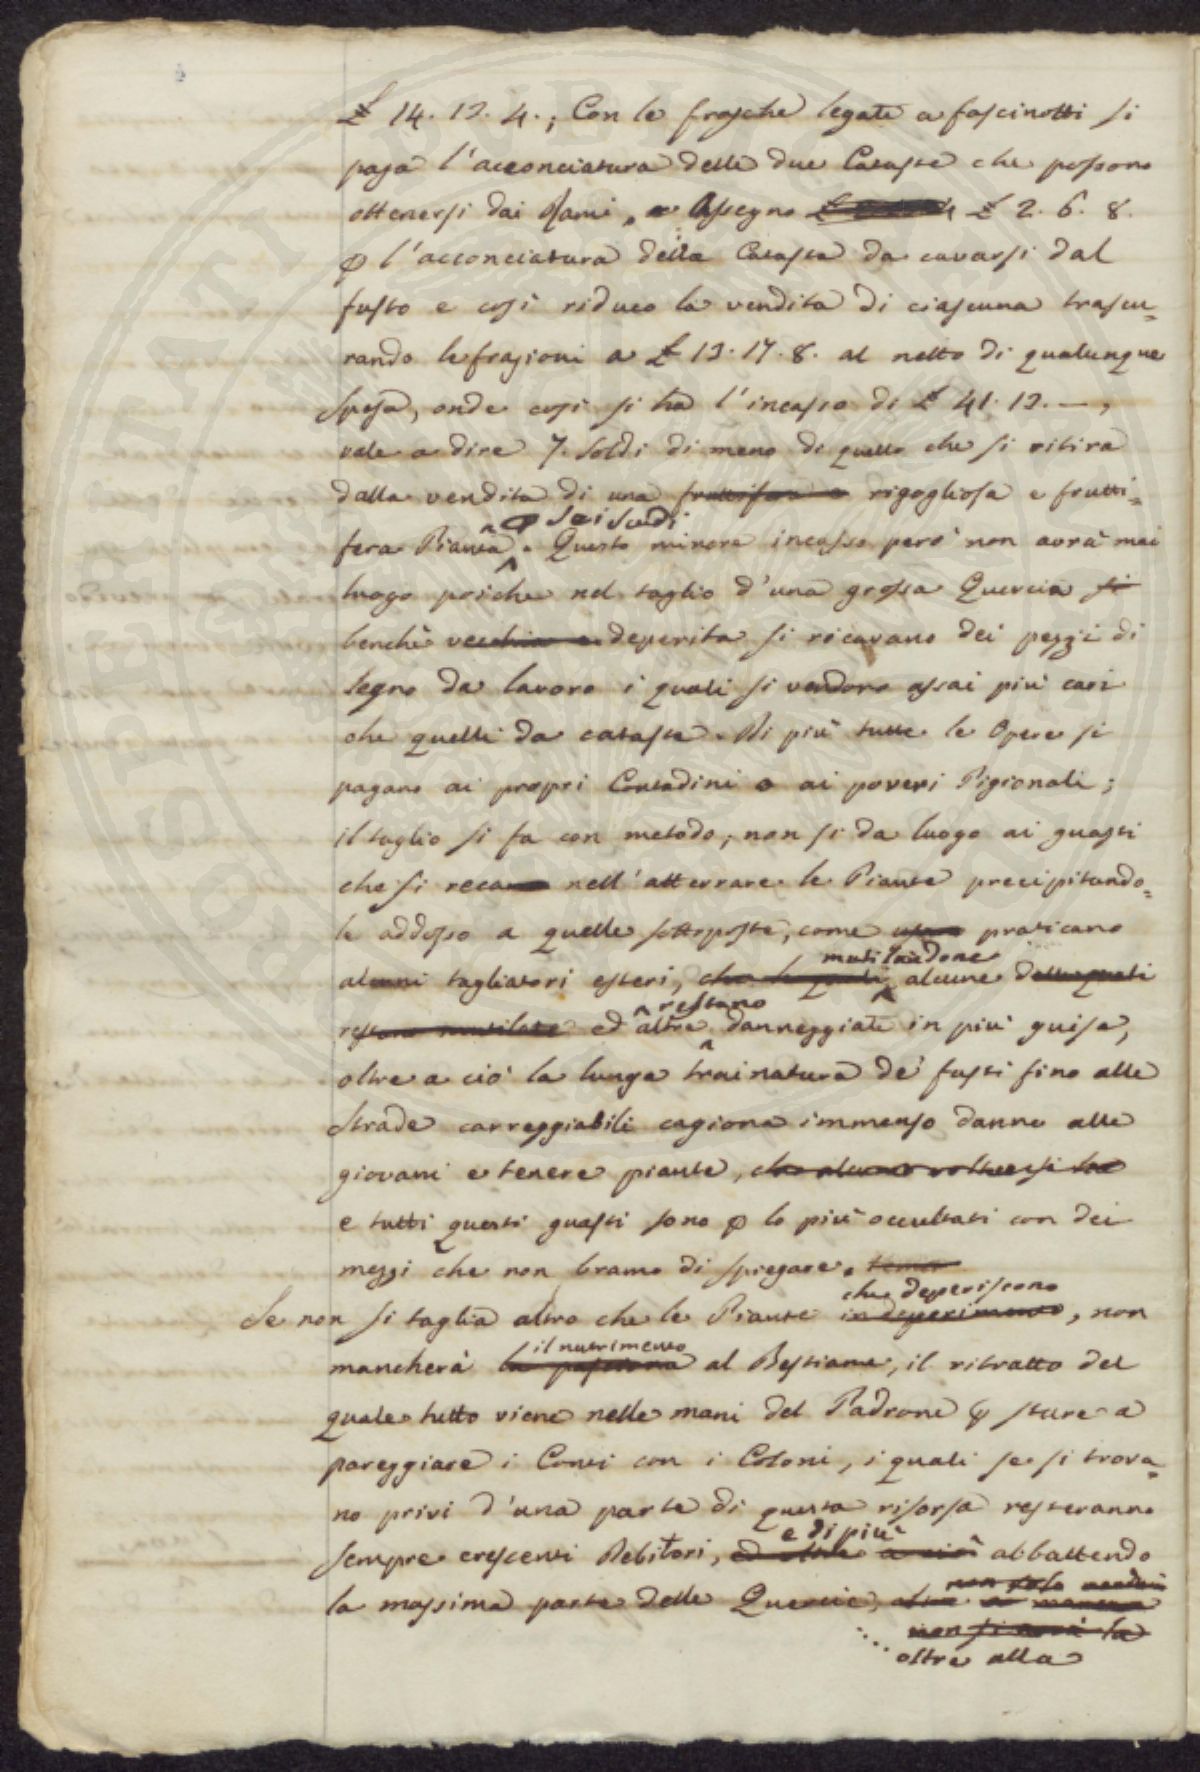 £ 14. 13. 4.; Con le frasche legate a fascinotti si
paga l'acconciatura delle due Cataste che possono
ottenersi dai Rami, Assegno £ 2. 6. 8.
p l'acconciatura della Catasta da cavarsi dal
fusto e così riduco la vendita di ciascuna trascu=
rando le frazioni a £ 13. 17. 8. al netto di qualunque
Spesa, onde così si ha l'incasso di £ 41. 13. —,
vale a dire 7. Soldi di meno di quello che si ritira
dalla vendita di una fruttifera e rigogliosa e frutti=
fera Pianta p sei scudi. Questo minore incasso però non avrà mai
luogo poichè nel taglio d'una grossa Quercia si
benchè vecchia e deperita si ricavano dei pezzi di
legno da lavoro i quali si vendono assai più cari
che quelli da catasta. Di più tutte le Opere si
pagano ai propri Contadini o ai poveri Pigionali;
il taglio si fa con metodo, non si da luogo ai guasti
che si recano nell'atterrare le Piante precipitando=
le addosso a quelle sottoposte, come usano praticano
alcuni tagliatori esteri, che le quali mutilandone alcune delle quali
restano mutilate ed altre restano danneggiate in più guise,
oltre a ciò la lunga trainatura de' fusti fino alle
Strade carreggiabili cagiona immenso danno alle
giovani e tenere piante,
e tutti questi guasti sono p lo più occultati con dei
mezzi che non bramo di spiegare.
Se non si taglia altro che le Piante in deperimento che deperiscono, non
mancherà la pastura il nutrimento al Bestiame, il ritratto del
quale tutto viene nelle mani del Padrone p stare a
pareggiare i Conti con i Coloni, i quali se si trova=
no privi d'una parte di questa risorsa resteranno
sempre crescenti Debitori, ed oltre a ciò e di più abbattendo
la massima parte delle Quercie,
non si avrà la
oltre alla